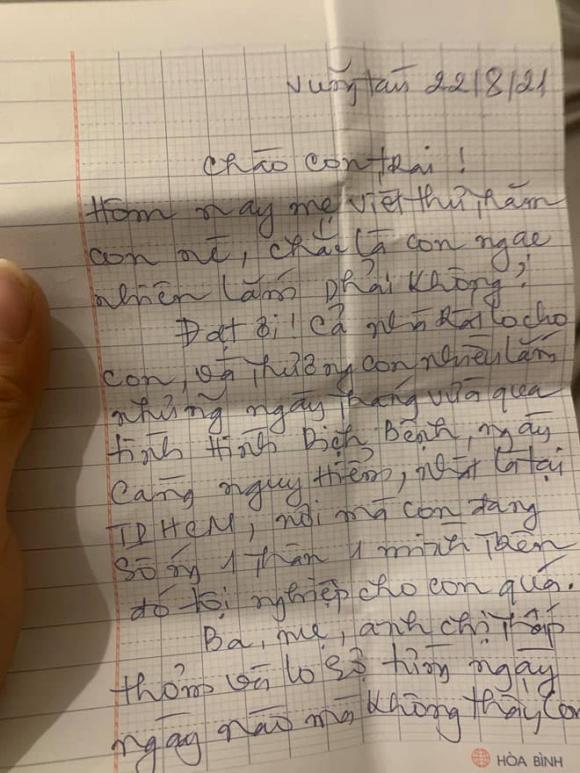 Vũng tàu 22/8/21
Chào con trai !
Hôm nay mẹ viết thư thăm
con nè, chắc là con ngạc
nhiên lắm phải không?
Đạt ơi! Cả nhà rất lo cho
con, và thương con nhiều lắm
những ngày tháng vừa qua
tình hình Dịch Bệnh, ngày
càng nguy hiểm, nhất là tại
TPHCM, nơi mà con đang
sống 1 thân 1 mình trên
đó tội nghiệp cho con quá.
Ba, mẹ, anh chị thấp
thỏm và lo sợ từng ngày
ngày nào mà không thấy con
HÒA BÌNH